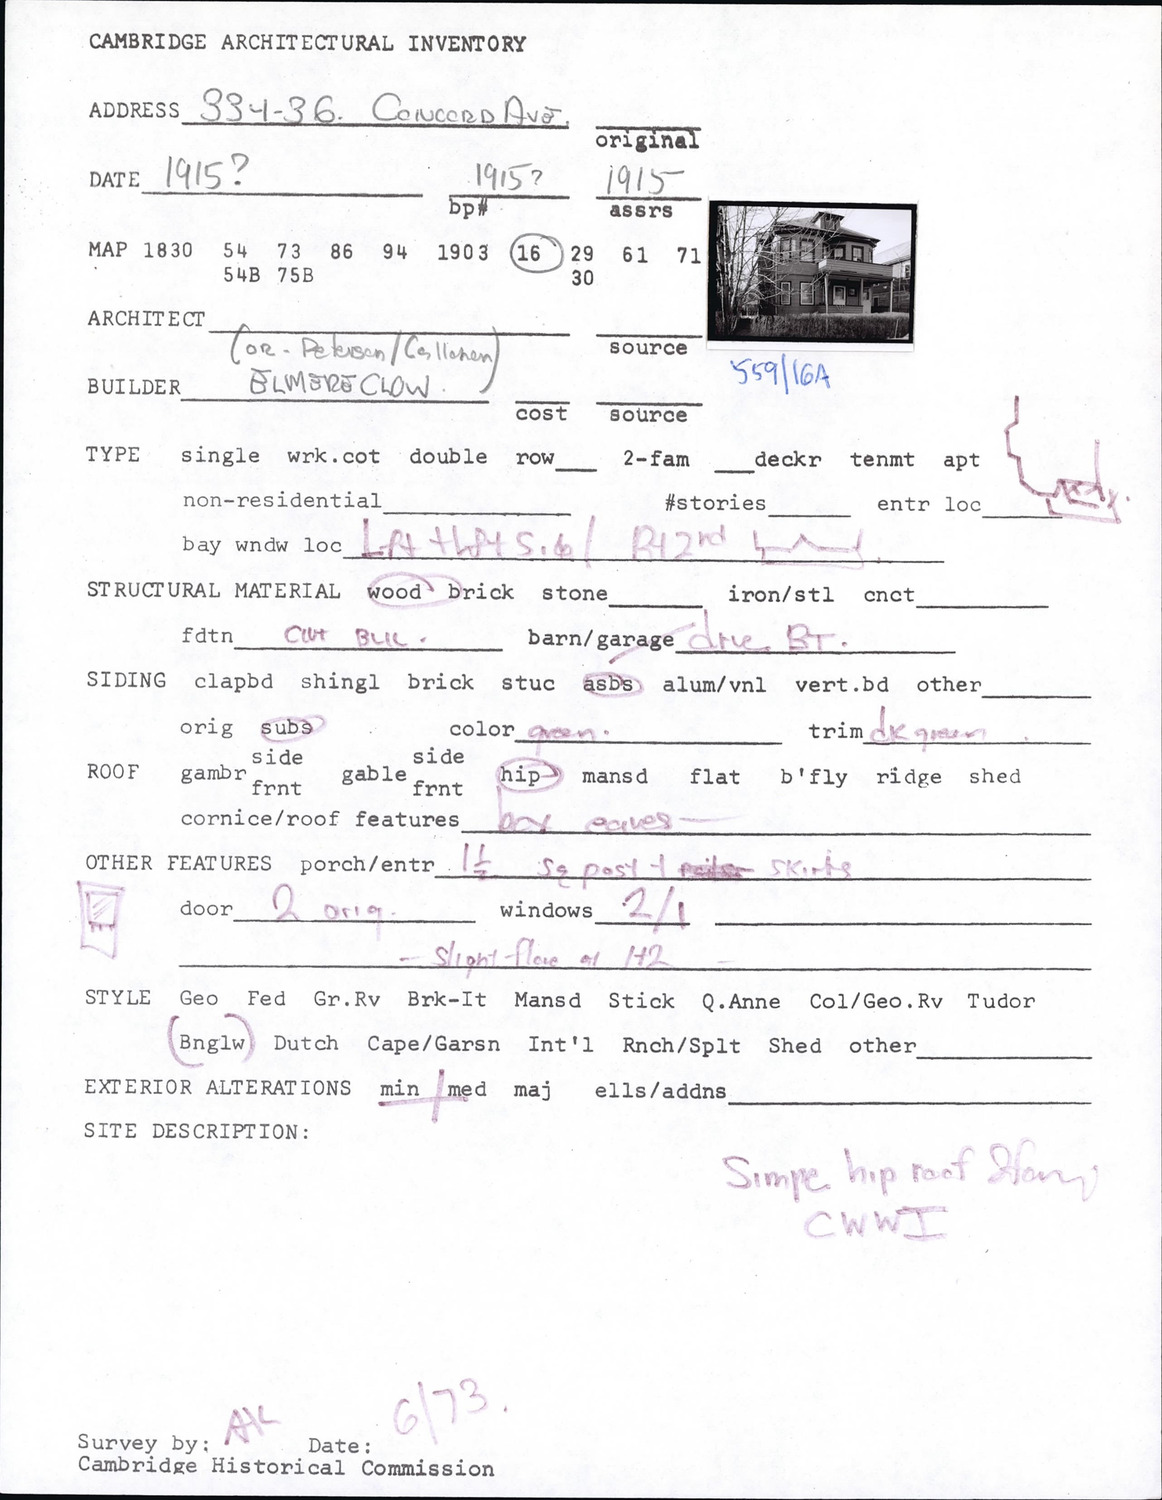 CAMBRIDGE ARCHITECTURAL INVENTORY
ADDRESS 334-36. CONCORD AVE.
original
DATE 1915? 1915? 1915
bp# assrs
MAP 1830 54 73 86 94 1903 16 29 61 71
54B 75B 30
ARCHITECT
(OR - Peterson/Callahan)
source
BUILDER ELMERE CLOW.
559/16A
cost source
TYPE single wrk.cot double row 2-fam deckr tenmt apt
non-residential #stories entr loc
bay wndw loc Lft + Lft Side / Rt 2nd
STRUCTURAL MATERIAL wood brick stone iron/stl cnct
fdtn Cnt BLK. barn/garage drive RT.
SIDING clapbd shingl brick stuc asbs alum/vnl vert.bd other
orig subs color green. trim dk green
side side
ROOF gambr gable hip mansd flat b'fly ridge shed
frnt frnt
cornice/roof features box eaves
OTHER FEATURES porch/entr Sq post + skirts
door 2 orig. windows 2/1
- Slight flare at 1+2 -
STYLE Geo Fed Gr.Rv Brk-It Mansd Stick Q.Anne Col/Geo.Rv Tudor
(Bnglw) Dutch Cape/Garsn Int'l Rnch/Splt Shed other
EXTERIOR ALTERATIONS min med maj ells/addns
SITE DESCRIPTION:
Simple hip roof
CWWI
6/73.
Survey by: Date:
Cambridge Historical Commission